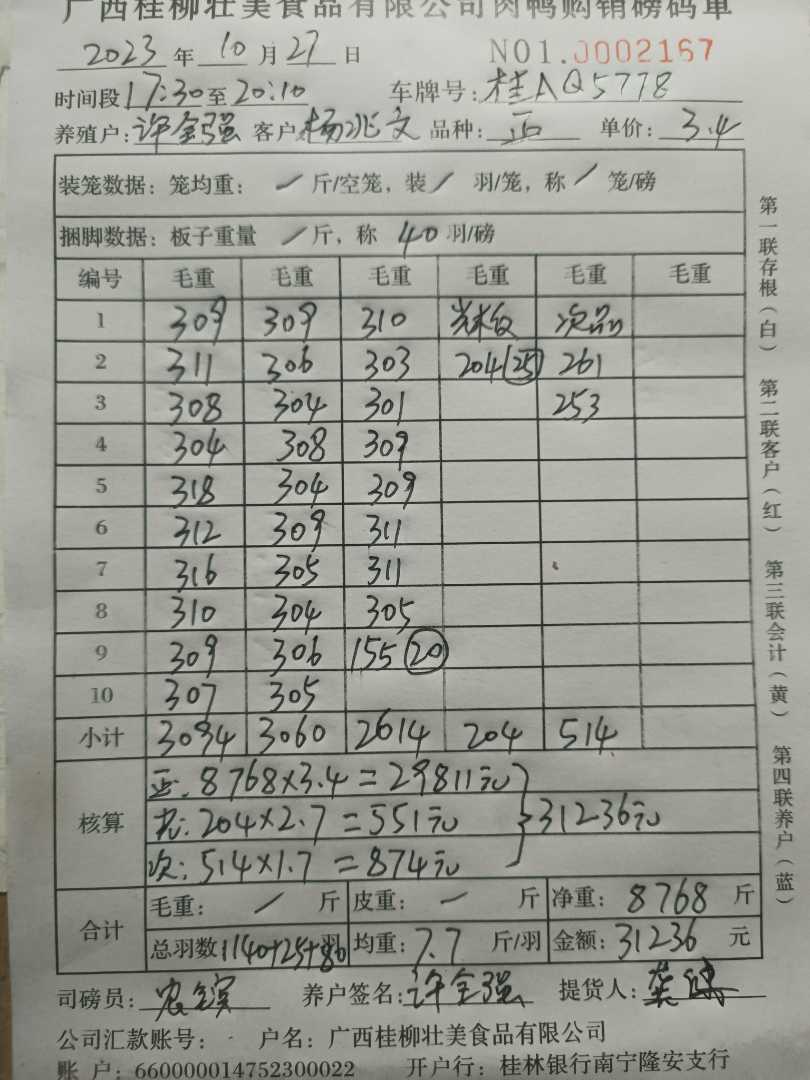 广西桂柳壮美食品有限公司肉鸭购销磅码单
2023 年 10 月 27 日 NO1.0002167
时间段 17:30 至 20:10 车牌号: 桂AQ5778
养殖户: 许全强 客户: 杨兆文 品种: 正 单价: 3.4
装笼数据: 笼均重: / 斤/空笼, 装 / 羽/笼, 称 / 笼/磅
捆脚数据: 板子重量 / 斤, 称 40 羽/磅
编号 毛重 毛重 毛重 毛重 毛重 毛重
1 309 309 310 次品
2 311 306 303 204 (25) 261
3 308 304 301 253
4 304 308 309
5 318 304 309
6 312 309 311
7 316 305 311
8 310 304 305
9 309 306 155 (20)
10 307 305
小计 3094 3060 2614 204 514
正: 8768×3.4=29811元
核算 204×2.7=551元 } 31236元
次: 514×1.7=874元
合计 毛重: / 斤 皮重: / 斤 净重: 8768 斤
总羽数 1140+25+80 羽 均重: 7.7 斤/羽 金额: 31236 元
司磅员: 养户签名: 许全强 提货人:
公司汇款账号: 户名: 广西桂柳壮美食品有限公司
账 户: 660000014752300022 开户行: 桂林银行南宁隆安支行
第一联存根(白) 第二联客户(红) 第三联会计(黄) 第四联养户(蓝)